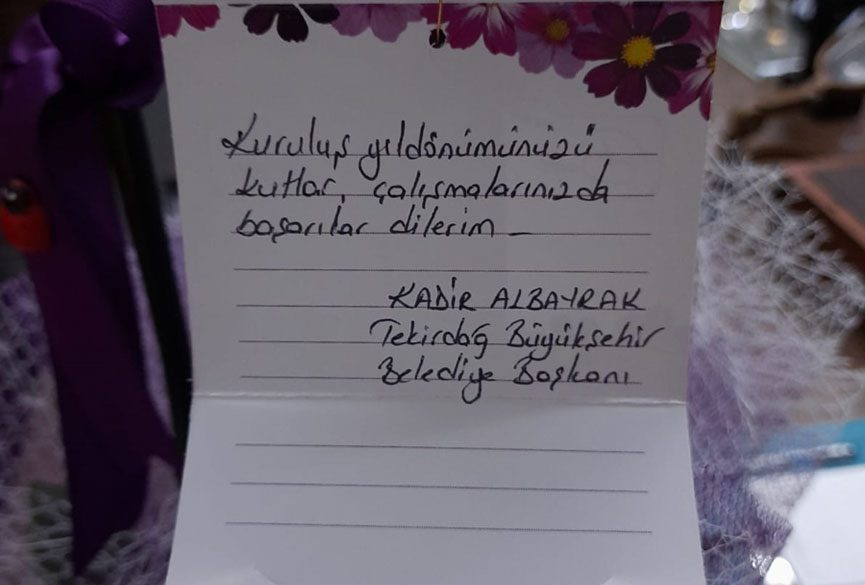 Kuruluş yıldönümünüzü
kutlar, çalışmalarınızda
başarılar dilerim –
KADİR ALBAYRAK
Tekirdağ Büyükşehir
Belediye Başkanı